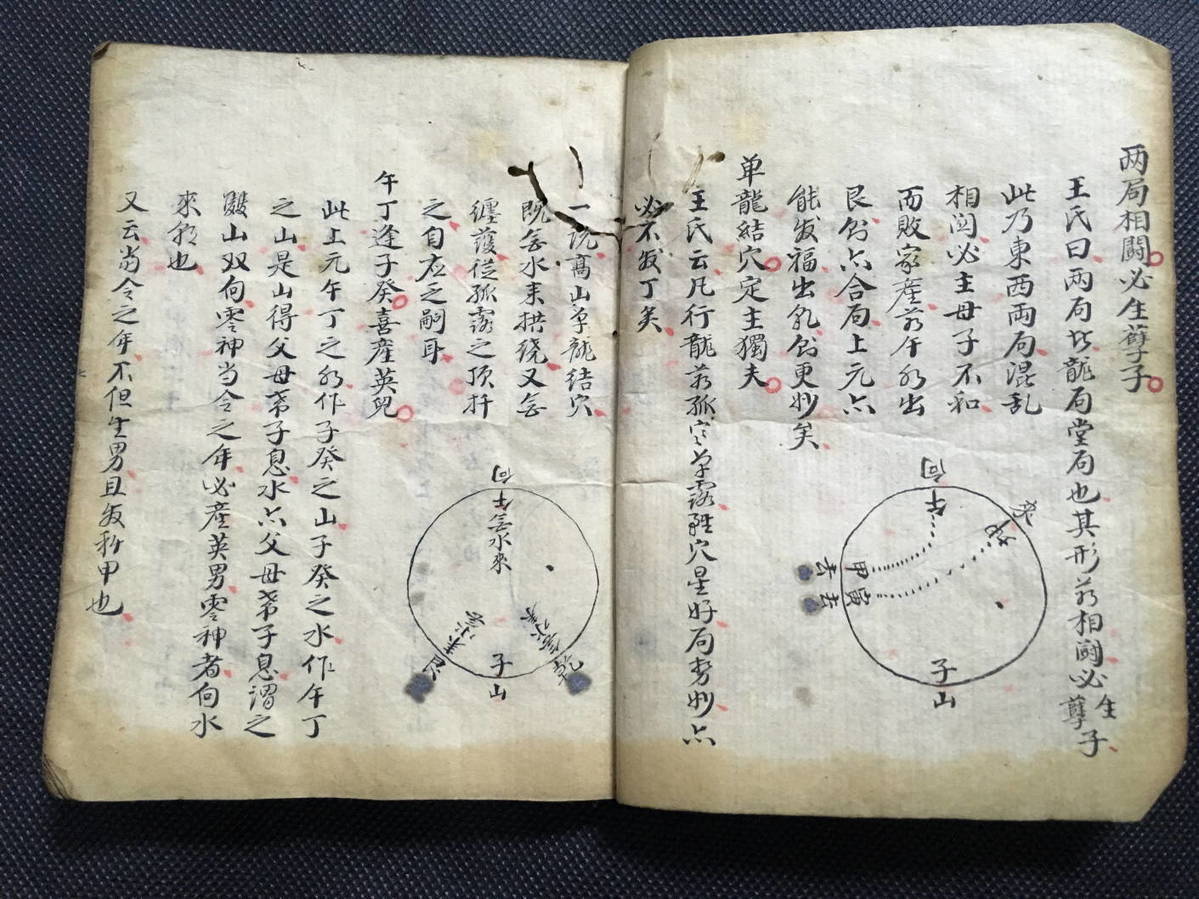 两局相鬪必生孽子
王氏曰两局皆龍局堂局也其形若相鬪必生孽子
此乃東西両局混乱
相闘必主母子不和
而敗家産若午水出
艮水亦合局上元亦
能发福出乳水更妙矣
单龍結穴定主獨夫
王氏云凡行龍若孤寒单露雖穴星好局势妙亦
必不发丁矣
向
午
甲
寅
去
去
子
山
一説髙山单龍結穴
既無水来拱绕又無
纏護從孤露之顶扦
之自应乏嗣耳
午丁逢子癸喜産英兒
此上元午丁之水作子癸之山子癸之水作午丁
之山是山得父母帯子息水亦父母帯子息謂之
雙山双向零神当令之年必産英男零神者向水
來水也
又云当令之年不但生男且发科甲也
向
去無水來
乾
子
山